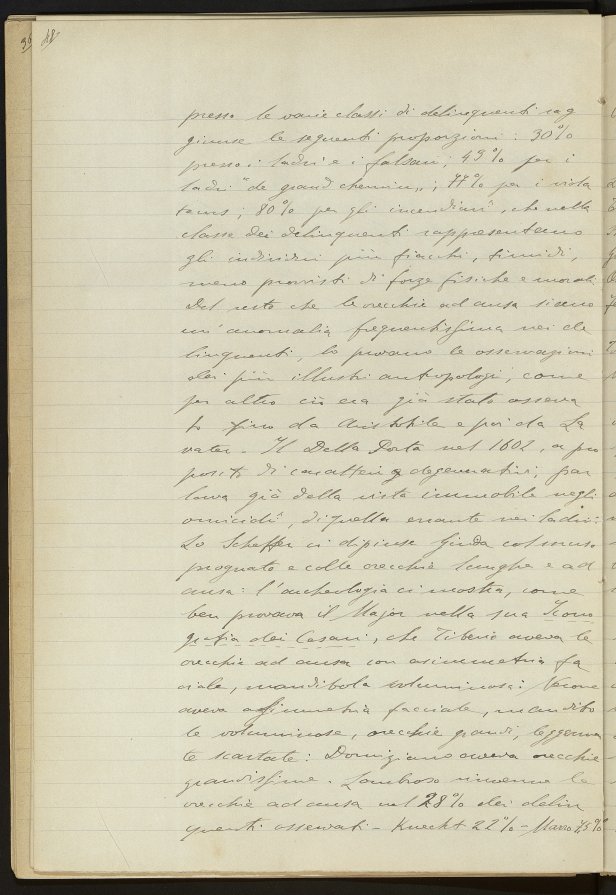 48
presso le varie classi di delinquenti rag
giunse le seguenti proporzioni: 30%
presso i ladri e i falsari; 49% per i
ladri "de grand chemin"; 77% per i viola
teurs; 80% per gli incendiari, che nella
classe dei delinquenti rappresentano
gli individui più fiacchi, timidi,
meno provvisti di forze fisiche e morali.
Del resto che le orecchie ad ansa siano
un'anomalia frequentissima nei de
linquenti, lo provano le osservazioni
dei più illustri antropologi, come
per altro ciò era già stato osserva
to fino da Aristotile e poi da La
vater. Il Della Porta nel 1602, a pro
posito di caratteri degenerativi, par
lava già della vista immobile negli
omicidi, di quella errante nei ladri:
Lo Scheffer ci dipinse Giuda col muso
prognato e colle orecchie lunghe e ad
ansa: l'archeologia ci mostra, come
ben provava il Major nella sua Icono
grafia dei Cesari, che Tiberio aveva le
orecchie ad ansa con asimmetria fa
ciale, mandibola voluminosa: Nerone
aveva assimmetria facciale, mandibo
le voluminose, orecchie grandi, leggermen
te scartate: Domiziano aveva orecchie
grandissime. Lombroso rinvenne le
orecchie ad ansa nel 28% dei delin
quenti osservati - Knecht 22% - Marro 7,5%